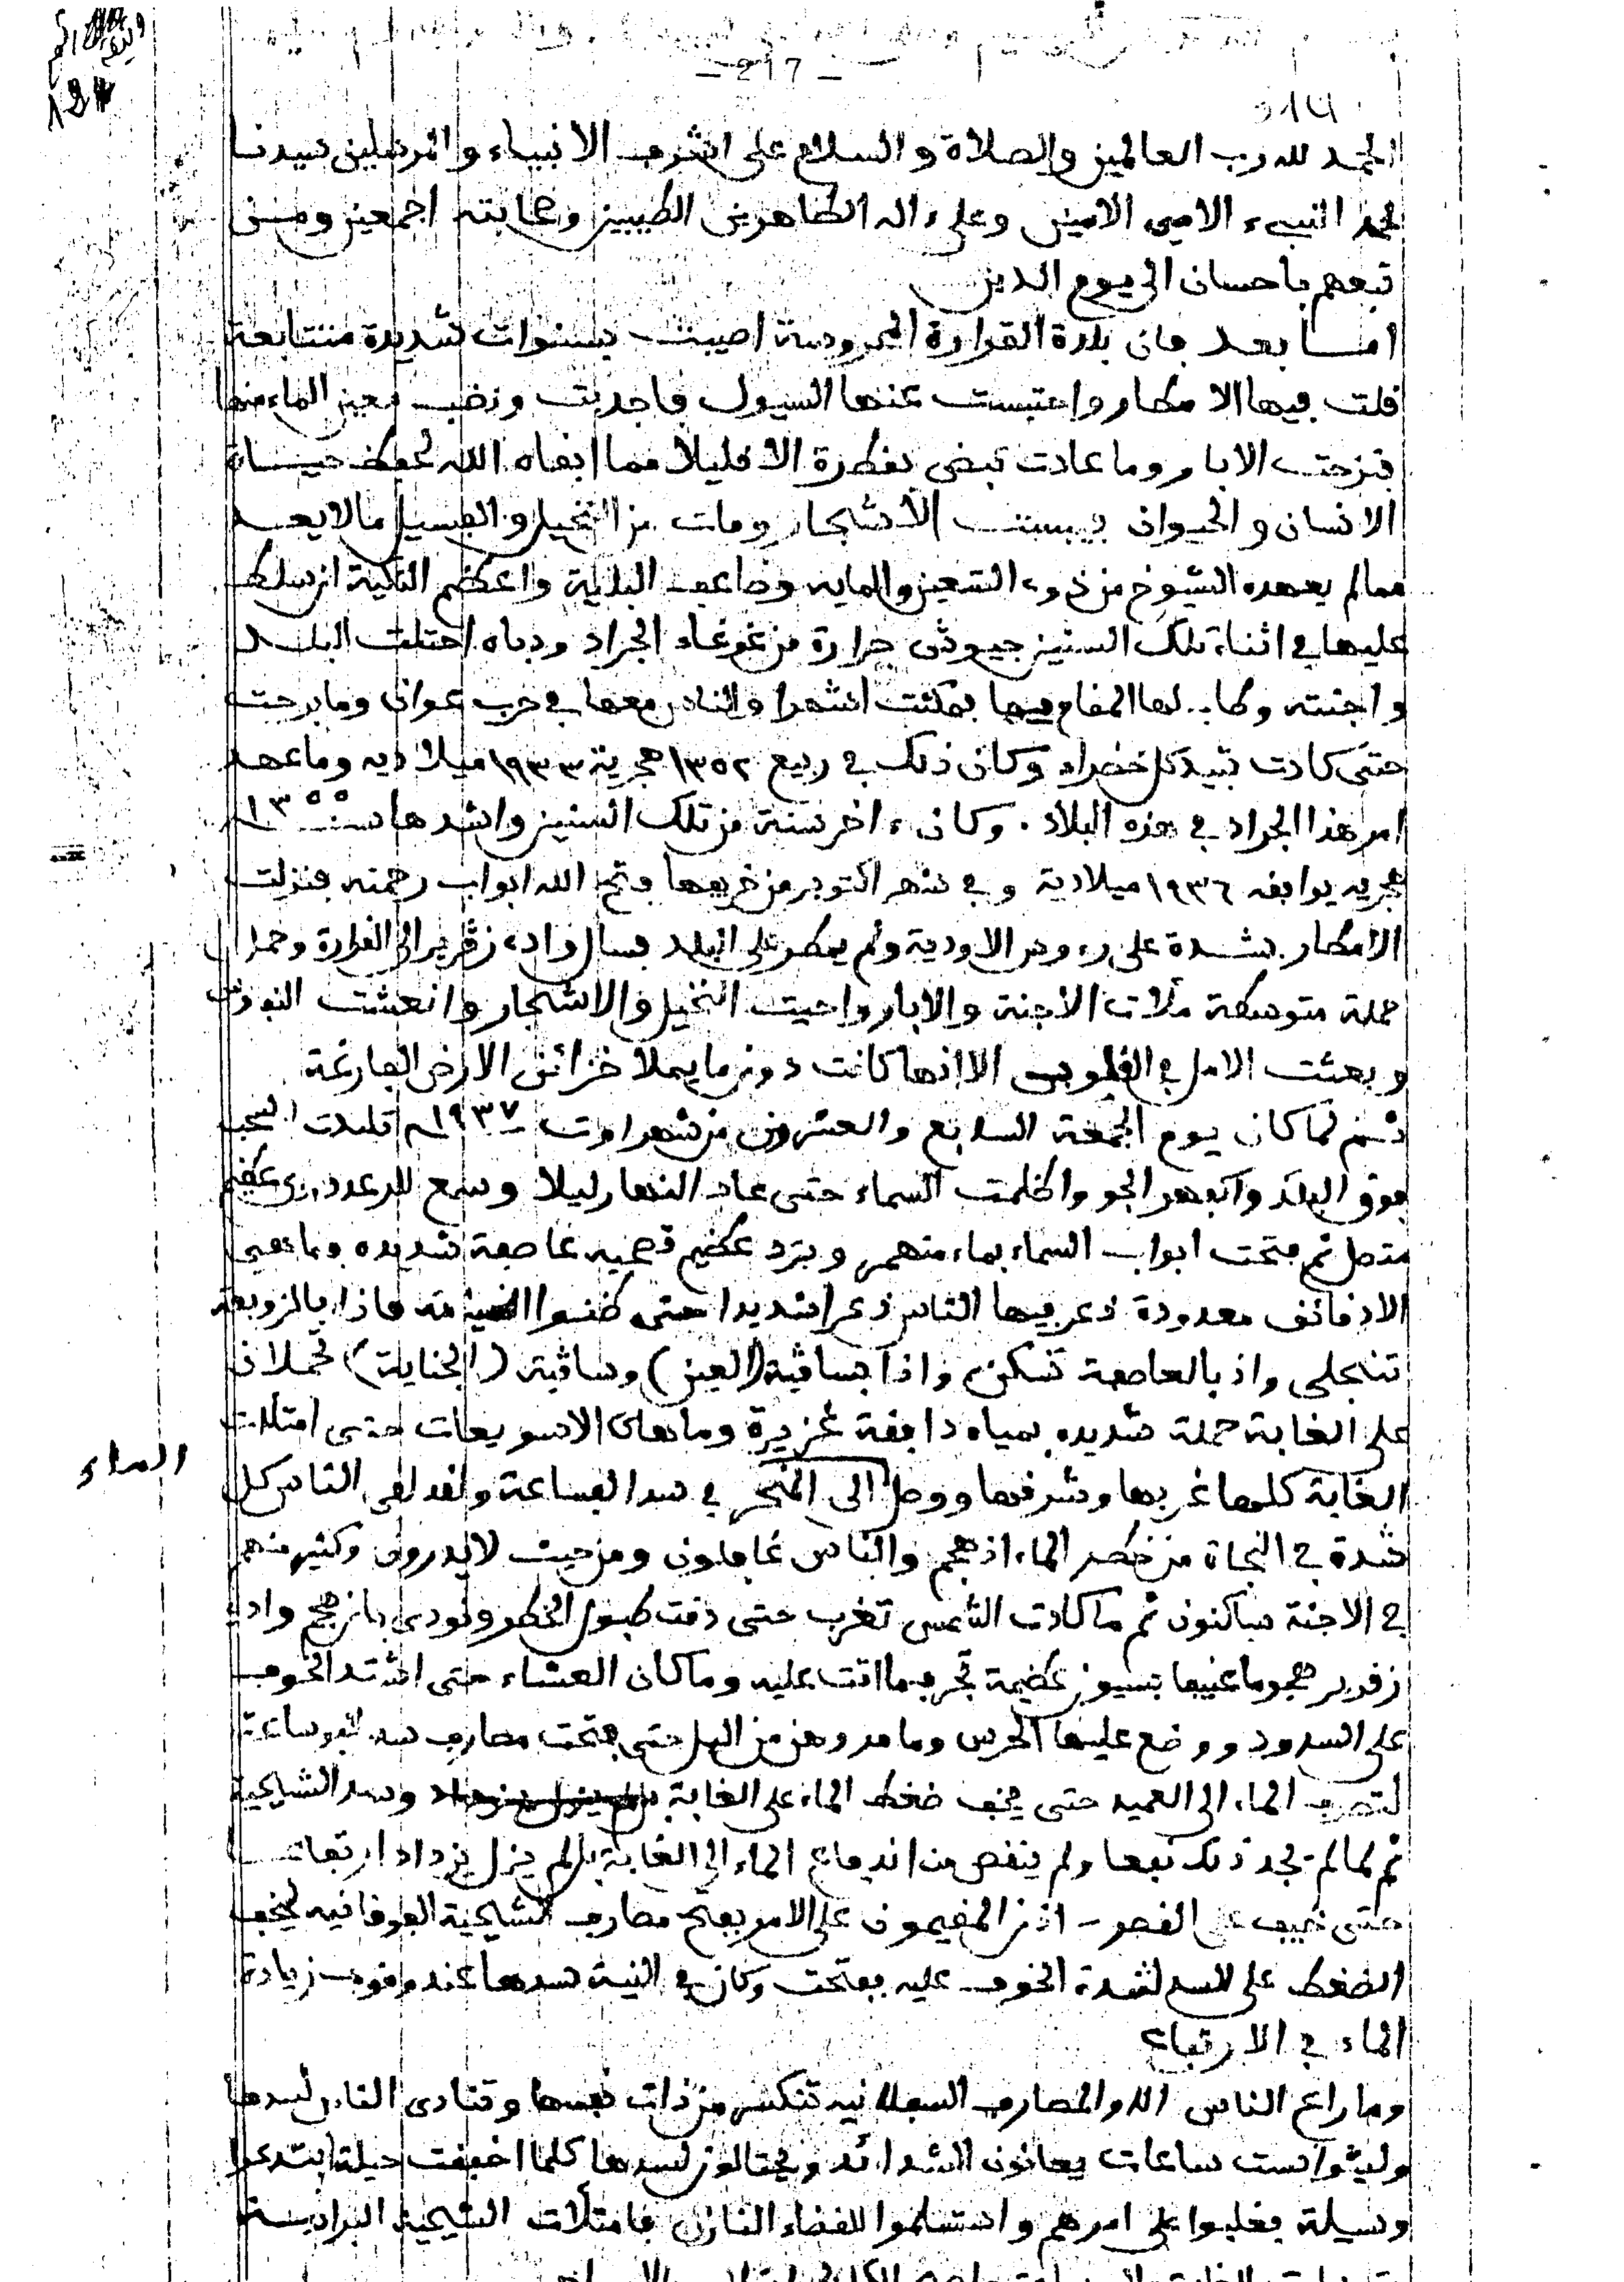 - 217 -
الحمد لله رب العالمين والصلاة والسلام على اشرف الانبياء والمرسلين سيدنا
محمد النبيء الامي الامين وعلى ءاله الطاهرين الطيبين وصحابته اجمعين ومن
تبعهم باحسان الى يوم الدين
امـا بعد فان بلدة القرارة المحروسة اصيبت بسنوات شديدة متتابعة
قلت فيها الامطار واحتبست عنها السيول فاجدبت ونضب معين الماء منها
فنزحت الابار وما عادت تبض بقطرة الا قليلا مما ابقاه الله لحفظ حيـاة
الانسان والحيوان فيبست الأشجار ومات من النخيل والفسيل مالا يعـد
ممالم يعهده الشيوخ من ذوي التسعين والمايه وضاعف البلية واعظم النكبة ان سلط
عليها في اثناء تلك السنين جيوش جرارة من غوغاء الجراد ودباه احتلت البلـد
واجنته وطاب لها المقام فيها فمكثت اشهرا والناس معها في حرب عوان وما برحت
حتى كادت تبيد كل خضراء وكان ذلك في ربيع ١٣٥٢ هجرية ١٩٣٣ ميلاديه وما عهد
امر هذا الجراد في هذه البلاد . وكان ءاخر سنة من تلك السنين واشدها سنة ١٣٥٥
هجريه يوافقه ١٩٣٦ ميلادية وفي شهر اكتوبر من خريفها فتح الله ابواب رحمته فنزلت
الأمطار بشدة على رءوس الاودية ولم يمطر على البلد فسال وادي زقرير الى القرارة وحمل
حملة متوسطة ملأت الأجنة والابار واحيت النخيل والاشجار وانعشت النفوس
وبعثت الامل في القلوب الا انها كانت دون ما يملأ خزائن الارض الفارغة
ثـم لما كان يوم الجمعة السابع والعشرون من شهر اوت ١٩٣٧م تلبدت السحب
فوق البلد واكفهر الجو واظلمت السماء حتى عاد النهار ليلا وسمع للرعد دوي عظيم
متصل ثم فتحت ابواب السماء بماء منهمر وبرد عظيم تصحبه عاصفة شديده وما هي
الا دقائق معدودة ذعر فيها الناس ذعرا شديدا حتى ظنوا فاذا بالزوبعة
تنجلي واذ بالعاصفة تسكن واذا بساقية (العين) وساقية (الجناية) تحملان
على الغابة حملة شديده بمياه دافقة غزيرة وما هي الا سويعات حتى امتلات
الغابة كلها غربها وشرقها ووصل الى المنحر في سد البساعة ولقد لقي الناس كل
الماء
شدة في النجاة من خطر الماء اذ هجم والناس غافلون ومن حيث لا يدرون وكثير منهم
في الاجنة ساكنون ثم ما كادت الشمس تغرب حتى دقت طبول الخطر ونودي بان هجم وادي
زقرير هجوما عنيفا بسيول عظيمة تجرف ما اتت عليه وما كان العشاء حتى اشتد الخوف
على السدود ووضع عليها الحرس وما مر وهن من الليل حتى فتحت مصارف سد
لتصرف الماء الى العميد حتى يخف ضغط الماء على الغابة وسد الشيحية
ثم لما لم يجد ذلك نفعا ولم ينقص من اندفاع الماء الى الغابة بل لم يزل يزداد ارتفاعـا
حتى خيف على القصر - اذن المقيمون على الامر بفتح مصارف الشيحية الفوقانيه ليخف
الضغط على السد لشدة الخوف عليه ففتحت وكان في النية سدها عند وقوف زيادة
الماء في الارتفاع
وما راع الناس الا والمصارف السفلانيه تنكسر من ذات نفسها وتنادى الناس لسدها
ولبثوا ست ساعات يعانون الشدائد ويحتالون لسدها كلما اخفقت حيلة ابتدعوا
وسيلة فغلبوا على امرهم واستسلموا للقضاء النازل فامتلأت الشيحية البرانيـة